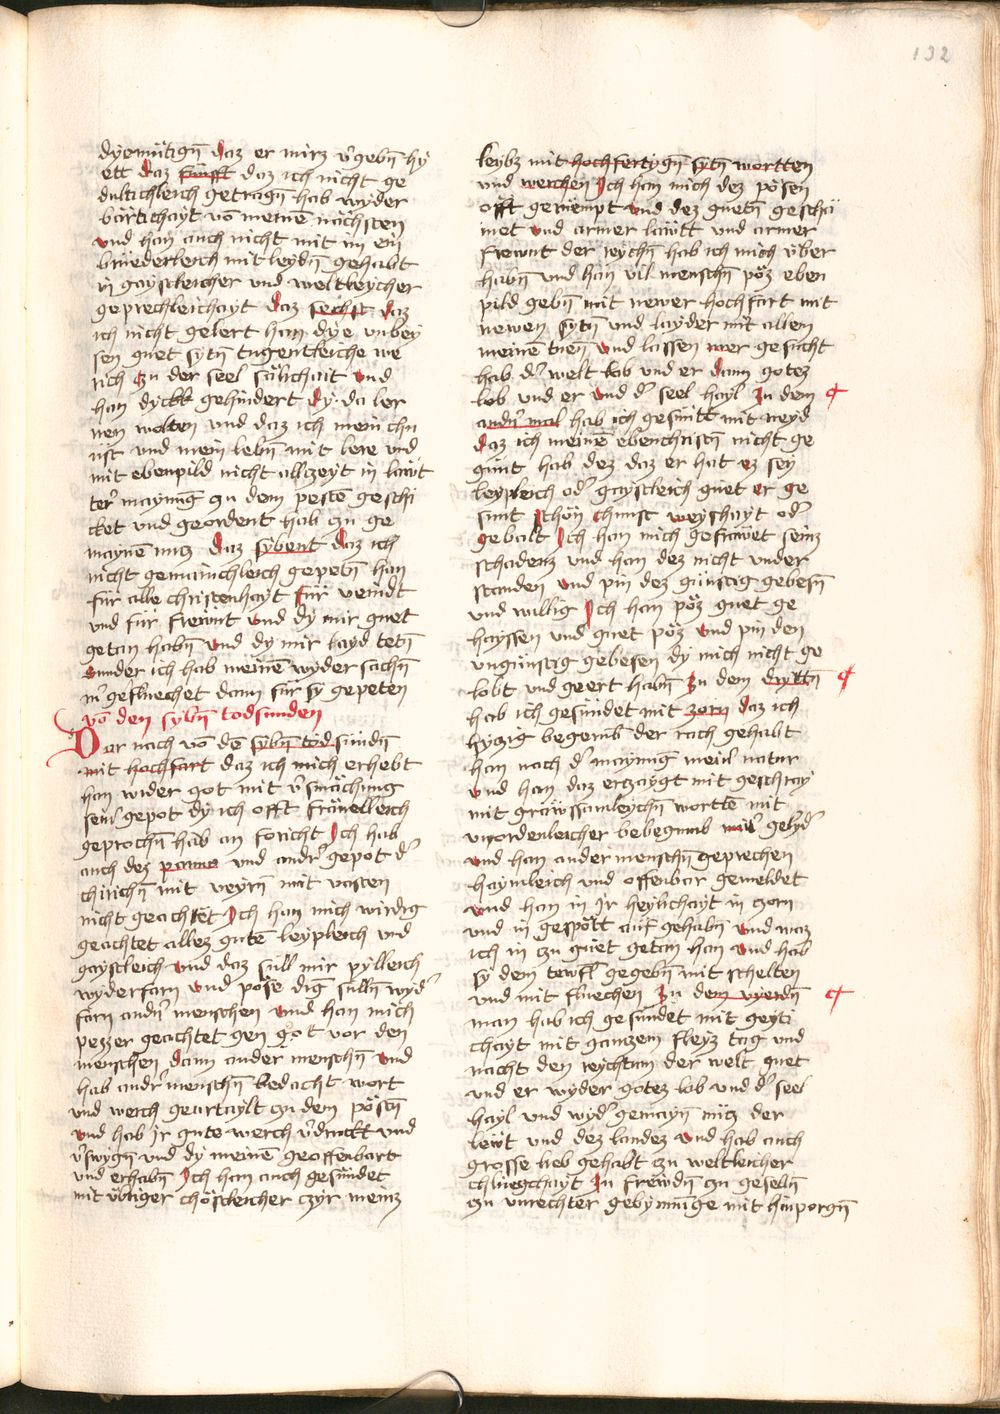 132
dyemütign̄ daz er mirz v̓gebn̄ hy
ett daz fünfft daz ich nicht ge
dultichleich getragn̄ hab wyder
bärtichayt vō meinē nächsten
vnd han auch nicht mit im ein
brüederleich mitleydn̄ gehabt
in gaystleicher vnd weltleycher
geprechleichayt daz sechst daz
ich nicht gelert han dye vnbey
sen guet sytn̄ tugentleiche we
rich zu der seel sälichait vnd
han dyckk gehindert dy da ler
nen wolten vnd daz ich mein chu
nst vnd mein lebn̄ mit lere vnd
mit ebenpild nicht allzeyt in lawt
ter̓ maynūg zu dem pestē geschi
cket vnd geordent hab zu ge
maynē nucz daz sybent daz ich
nicht gemainchleich gepetn̄ han
für alle christenhayt für veindt
vnd für frewnt vnd dy mir guet
getan habn̄ vnd dy mir layd tetn̄
sunder ich hab meinē wyder sachn̄
m̄ gefluechet dann für sy gepeten
vō den sybn̄ todsunden
Dar nach vō dē sybn̄ tod sündn̄
mit hochfart daz ich mich erhebt
han wider got mit v̓smächung
sein̓ gepot dy ich offt fräuelleich
geprochn̄ hab an foricht Ich hab
auch dez pannes vnd andr̓ gepot d̓
chirichn̄ mit veyrn̄ mit vasten
nicht geachtet Ich han mich wirdig
geachtet allez gutē leypleich vnd
gaystleich vnd daz süll mir pylleich
wyderfarn vnd pöse dīg sulln̄ wyd̓
farn andn̓ menschen vnd han mich
pezzer geachtet gen got vor den
menschen dann ander menschn̄ vnd
hab andr̓ menschn̄ bedacht wort
vnd werch geurtaylt zu dem pöstn̄
vnd hab Jr gute werch v̓druckt vnd
v̓swygn̄ vnd dy meinē geoffenbart
vnd erhabn̄ Ich han auch gesündet
mit übriger chöstleicher czyr meinz
leybz mit hochfertign̄ sytn̄ wortten
vnd werchen Ich han mich dez pösen
offt gerüempt vnd dez guetn̄ geschä
met vnd armer läwtt vnd armer
frewnt der reychn̄ hab ich mich über
habn̄ vnd han vil menschn̄ pöz eben
pild gebn̄ mit newer hochfart mit
newen sytn̄ vnd layder mit allem
meinē tuen vnd lassen mer gesucht
hab d̓ welt lob vnd er dann gotez
lob vnd er vnd d̓ seel hayl In dem
andn̓ mal hab ich gesuntt mit neyd
daz ich meinē ebenchristn̄ nicht ge
günt hab dez daz er hat ez sey
leypleich od̓ gaystleich guet er ge
sunt schön chunst weyshayt od̓
gebalt Ich han mich gefräwet seinz
schadenz vnd han dez nicht vnder
standen vnd pin dez günstig gebesn̄
vnd willig Ich han pöz guet ge
hayssen vnd guet pöz vnd pin den
vngünstig gebesen dy mich nicht ge
lobt vnd geert habn̄ Zu dem drittn̄
hab ich gesündet mit zorn daz ich
hyczig begerūb der rach gehabt
han nach d̓ maynūg mein̓ natur
vnd han daz erzaygt mit geschray
mit gräwssamleychn̄ wortē mit
vnordenleicher bebegnub mein̓ gelyd̓
vnd han ander menschn̄ geprechen
haymleich vnd offenbar gemeldet
vnd han in Jr heylichayt in czorn
vnd in gespött auf gehabn̄ vnd waz
ich in zu guet getan han vnd hab
sy dem tewfl̓ gegebn̄ mit schelten
vnd mit fluechen Zu dem vyerdn̄
man hab ich gesündet mit geyti
chayt mit ganczem fleyz tag vnd
nacht den reychtum der welt guet
vnd er wyder gotez lob vnd d̓ seel
hayl vnd wyd̓ gemayn nucz der
lewt vnd dez landez vnd hab auch
grosse lieb gehabt zu weltleicher
chluegchayt In frewdn̄ zu geselln̄
zu vnrechter gebynnūge mit hinporgn̄